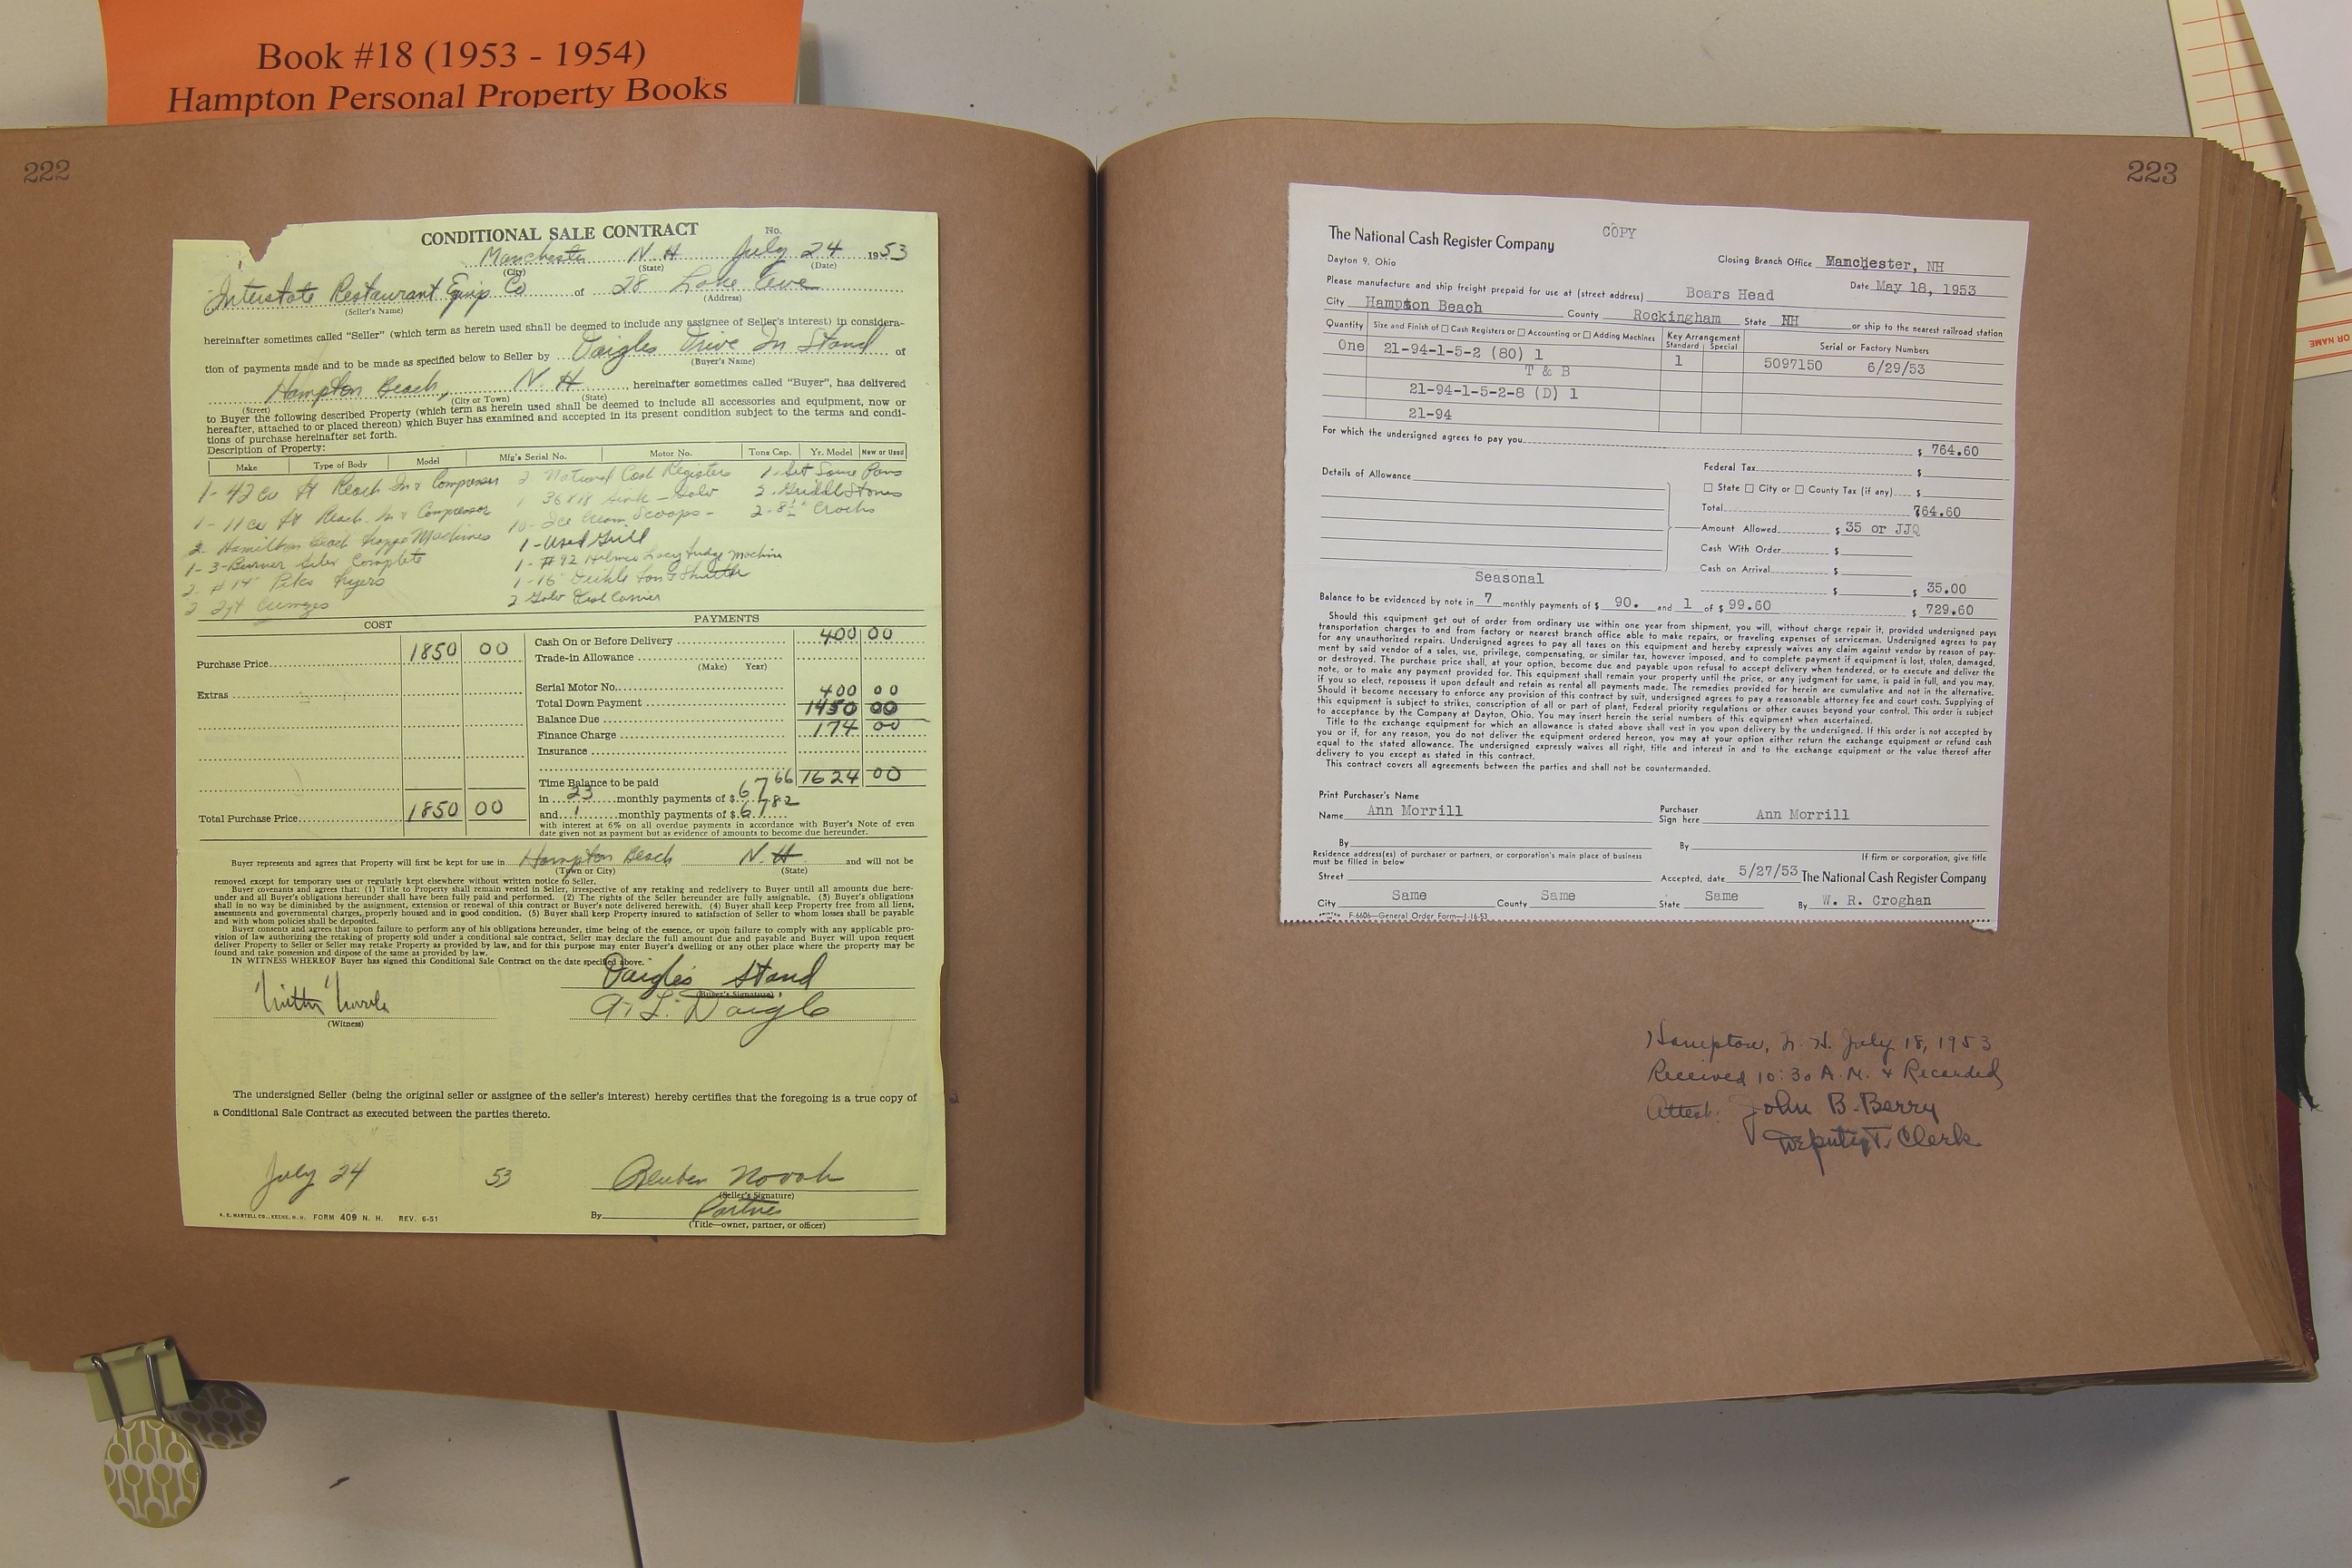 Book #18 (1953 - 1954)
Hampton Personal Property Books
222
CONDITIONAL SALE CONTRACT No.
Manchester N. H July 24 1953
(City) (State) (Date)
Interstate Restaurant Equip Co of 28 Lake Ave
(Seller's Name) (Address)
hereinafter sometimes called "Seller" (which term as herein used shall be deemed to include any assignee of Seller's interest) in considera-
tion of payments made and to be made as specified below to Seller by Daigles Drive In Stand of
(Buyer's Name)
Hampton Beach, N. H , hereinafter sometimes called "Buyer", has delivered
(Street) (City or Town) (State)
to Buyer the following described Property (which term as herein used shall be deemed to include all accessories and equipment, now or
hereafter, attached to or placed thereon) which Buyer has examined and accepted in its present condition subject to the terms and condi-
tions of purchase hereinafter set forth.
Description of Property:
Make Type of Body Model Mfg's Serial No. Motor No. Tons Cap. Yr. Model New or Used
1- 42 cu ft Reach In & Compressor 2 National Cash Registers 1- Set Pans
1- 11 cu ft Reach In & Compressor 1 36x18 Sink - Galv 2- Griddle Stones
2- Hamilton Beach Machines 10- Ice Cream Scoops - 2- 8½" Crocks
1- 3-Burner Silex Complete 1- Used Grill
2 #14" Fryers 1- #92 Holmes Lacy fudge Machine
2 2qt 1- 16" Fan & Shutter
2 Galv Carrier
COST PAYMENTS
Purchase Price 1850 00 Cash On or Before Delivery 400 00
Trade-in Allowance
(Make) Year)
Extras Serial Motor No.
Total Down Payment 400 00
Balance Due 1450 00
Finance Charge 174 00
Insurance
Time Balance to be paid 1624 00
in 23 monthly payments of $ 67.66
Total Purchase Price 1850 00 and 1 monthly payments of $ 67.82
with interest at 6% on all overdue payments in accordance with Buyer's Note of even
date given not as payment but as evidence of amounts to become due hereunder.
Buyer represents and agrees that Property will first be kept for use in Hampton Beach N. H and will not be
(Town or City) (State)
removed except for temporary uses or regularly kept elsewhere without written notice to Seller.
Buyer covenants and agrees that: (1) Title to Property shall remain vested in Seller, irrespective of any retaking and redelivery to Buyer until all amounts due here-
under and all Buyer's obligations hereunder shall have been fully paid and performed. (2) The rights of the Seller hereunder are fully assignable. (3) Buyer's obligations
shall in no way be diminished by the assignment, extension or renewal of this contract or Buyer's note delivered herewith. (4) Buyer shall keep Property free from all liens,
assessments and governmental charges, properly housed and in good condition. (5) Buyer shall keep Property insured to satisfaction of Seller to whom losses shall be payable
and with whom policies shall be deposited.
Buyer consents and agrees that upon failure to perform any of his obligations hereunder, time being of the essence, or upon failure to comply with any applicable pro-
vision of law authorizing the retaking of property sold under a conditional sale contract, Seller may declare the full amount due and payable and Buyer will upon request
deliver Property to Seller or Seller may retake Property as provided by law, and for this purpose may enter Buyer's dwelling or any other place where the property may be
found and take possession and dispose of the same as provided by law.
IN WITNESS WHEREOF Buyer has signed this Conditional Sale Contract on the date specified above.
Daigle's Stand
(Buyer's Signature)
A. L. Daigle
(Witness)
The undersigned Seller (being the original seller or assignee of the seller's interest) hereby certifies that the foregoing is a true copy of
a Conditional Sale Contract as executed between the parties thereto.
July 24 53 Reuben Novak
(Seller's Signature)
By Partner
(Title—owner, partner, or officer)
A. E. MARTELL CO., KEENE, N. H. FORM 409 N. H. REV. 6-51
223
COPY
The National Cash Register Company
Dayton 9, Ohio Closing Branch Office Manchester, NH
Please manufacture and ship freight prepaid for use at (street address) Boars Head Date May 18, 1953
City Hampton Beach County Rockingham State NH or ship to the nearest railroad station
Quantity Size and Finish of Cash Registers or Accounting or Adding Machines Key Arrangement Standard Special Serial or Factory Numbers
One 21-94-1-5-2 (80) 1 1 5097150 6/29/53
T & B
21-94-1-5-2-8 (D) 1
21-94
For which the undersigned agrees to pay you $ 764.60
Details of Allowance Federal Tax $
State City or County Tax (if any) $
Total 764.60
Amount Allowed $ 35 or JJQ
Cash With Order $
Cash on Arrival $
$ $ 35.00
Seasonal
Balance to be evidenced by note in 7 monthly payments of $ 90. and 1 of $ 99.60 $ 729.60
Should this equipment get out of order from ordinary use within one year from shipment, you will, without charge repair it, provided undersigned pays
transportation charges to and from factory or nearest branch office able to make repairs, or traveling expenses of serviceman. Undersigned agrees to pay
for any unauthorized repairs. Undersigned agrees to pay all taxes on this equipment and hereby expressly waives any claim against vendor by reason of pay-
ment by said vendor of a sales, use, privilege, compensating, or similar tax, however imposed, and to complete payment if equipment is lost, stolen, damaged,
or destroyed. The purchase price shall, at your option, become due and payable upon refusal to accept delivery when tendered, or to execute and deliver the
note, or to make any payment provided for. This equipment shall remain your property until the price, or any judgment for same, is paid in full, and you may,
if you so elect, repossess it upon default and retain as rental all payments made. The remedies provided for herein are cumulative and not in the alternative.
Should it become necessary to enforce any provision of this contract by suit, undersigned agrees to pay a reasonable attorney fee and court costs. Supplying of
this equipment is subject to strikes, conscription of all or part of plant, Federal priority regulations or other causes beyond your control. This order is subject
to acceptance by the Company at Dayton, Ohio. You may insert herein the serial numbers of this equipment when ascertained.
Title to the exchange equipment for which an allowance is stated above shall vest in you upon delivery by the undersigned. If this order is not accepted by
you or if, for any reason, you do not deliver the equipment ordered hereon, you may at your option either return the exchange equipment or refund cash
equal to the stated allowance. The undersigned expressly waives all right, title and interest in and to the exchange equipment or the value thereof after
delivery to you except as stated in this contract.
This contract covers all agreements between the parties and shall not be countermanded.
Print Purchaser's Name
Name Ann Morrill Purchaser Sign here Ann Morrill
By By
Residence address(es) of purchaser or partners, or corporation's main place of business must be filled in below If firm or corporation, give title
Street Accepted, date 5/27/53 The National Cash Register Company
City Same County Same State Same By W. R. Croghan
F-6606—General Order Form—1-16-53
Hampton, N. H. July 18, 1953
Received 10:30 A.M. & Recorded
Attest: John B. Berry
Deputy T. Clerk
OR NAME